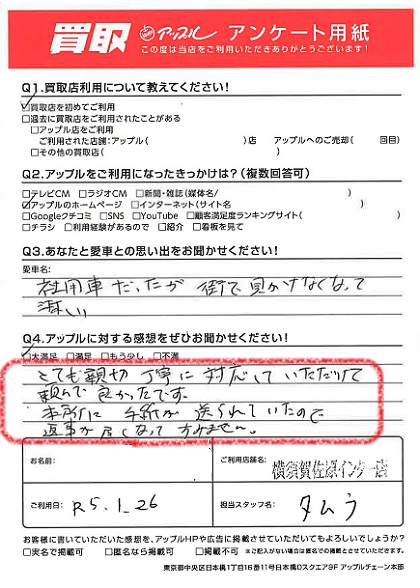 買取 アップル アンケート用紙
この度は当店をご利用いただきありがとうございます!
Q1.買取店利用について教えてください!
☑買取店を初めてご利用
□過去に買取店をご利用されたことがある
□アップル店をご利用
ご利用された店舗:アップル( )店 アップルへのご売却( 回目)
□その他の買取店( )
Q2.アップルをご利用になったきっかけは?(複数回答可)
□テレビCM □ラジオCM □新聞・雑誌(媒体名/ )
☑アップルのホームページ □インターネット(サイト名 )
□Googleクチコミ □SNS □YouTube □顧客満足度ランキングサイト( )
□チラシ □利用経験があるので □紹介 □看板を見て
Q3.あなたと愛車との思い出をお聞かせください!
愛車名:
社用車だったが 街で見かけなくなって
淋しい
Q4.アップルに対する感想をぜひお聞かせください!
☑大満足 □満足 □もう少し □不満
とても親切 丁寧に対応していただけて
頼んで良かったです。
本所に手紙が送られていたので
返事が遅くなってすみません。
お名前:
ご利用店舗名:
横須賀佐原インター店
ご利用日: R5.1.26
担当スタッフ名: タムラ
お客様に書いていただいた感想を、アップルHPや広告に掲載させていただいてもよろしいでしょうか?
□実名で掲載可 □匿名なら掲載可 □掲載不可 ※ご記入がない場合は匿名での掲載とさせていただきます。
東京都中央区日本橋1丁目16番11号日本橋Dスクエア9F アップルチェーン本部